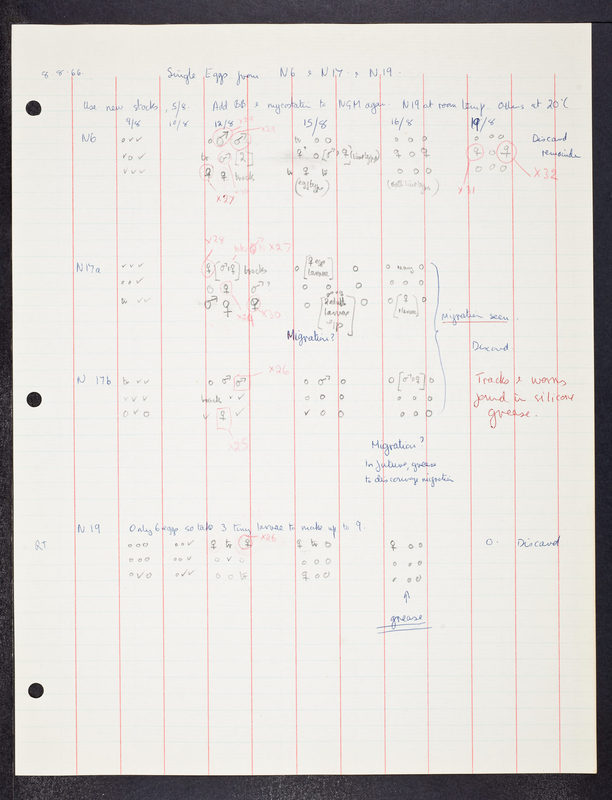 8.8.66. Single Eggs from N6 & N17 & N19.
Use new stocks, 5/8. Add BB & mycostatin to NGM again. N19 at room temp. Others at 20°C
9/8 10/8 12/8 15/8 16/8 19/8
N6 o ✓ ✓ ♂ ♂ o o o o o o o o Discard
✓ o ✓ ♂ [2] ♀ o ♀ o ♀ ♀ o ♀ remainder
✓ ✓ ✓ ♀ ♀ track ♀ o o o o o o
x27 x31 x32
x28 x27
N17a ✓ ✓ ✓ ♀ [♂♀] tracks o [♀ egg larvae] o o many o
o o ✓ o ♀ ♂? o o o o o o
✓ ✓ ♂ ♀ ♀ o [larvae] o o [♀ + larvae] o
x30
Migration?
Migration seen.
Discard
x26
N 17b ✓ ✓ o ♂ ♂ o ♂ o o [♂♀] o Tracks & worms
✓ ✓ ✓ track ✓ ✓ ✓ o o o o o found in silicone
o ✓ o ✓ ♀ ✓ ✓ o o o o o grease.
x25
Migration?
In future, grease
to discourage migration
N 19 Only 6 eggs so take 3 tiny larvae to make up to 9.
RT o o o o o ✓ ♀ ♀ x26 ♀ o ♀ o o o. Discard
o o o o o ✓ o ✓ o o o o o o o
o ✓ o o ✓ ✓ o o ♀ o o o o o
↑
grease